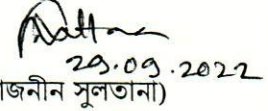 29.09.2022
জনীন সুলতানা)